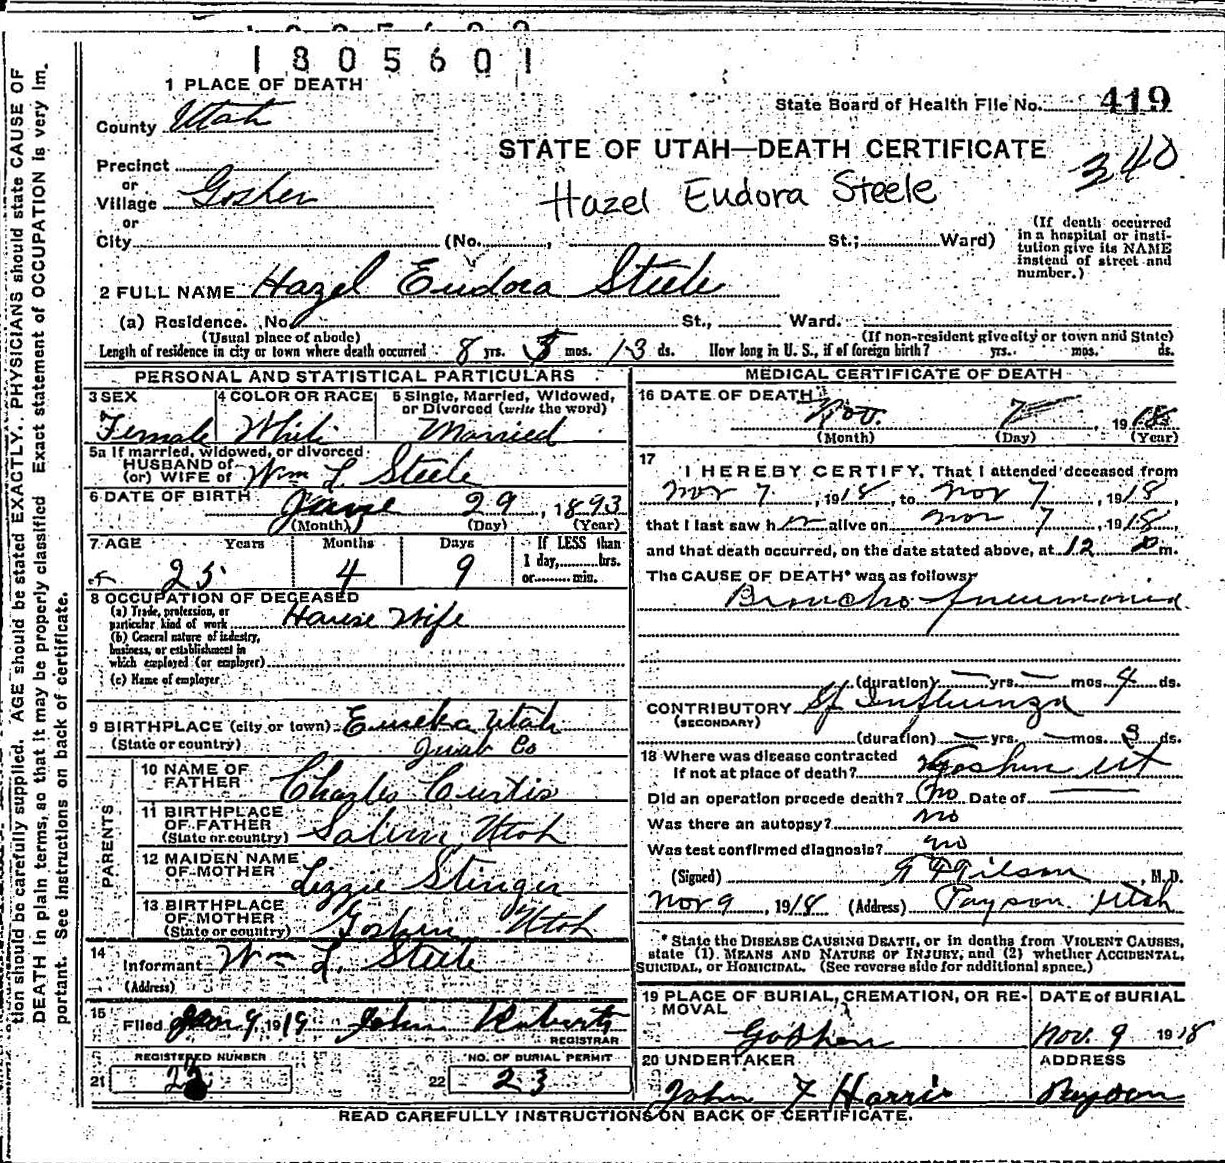 1805601
1 PLACE OF DEATH
State Board of Health File No. 419
County Utah
STATE OF UTAH—DEATH CERTIFICATE
340
Precinct
or
Village Goshen
Hazel Eudora Steele
or
City (No. , St.; Ward)
(If death occurred
in a hospital or insti-
tution give its NAME
instead of street and
number.)
2 FULL NAME Hazel Eudora Steele
(a) Residence. No. St., Ward.
(Usual place of abode) (If non-resident give city or town and State)
Length of residence in city or town where death occurred 8 yrs. 5 mos. 13 ds. How long in U. S., if of foreign birth? yrs. mos. ds.
PERSONAL AND STATISTICAL PARTICULARS
3 SEX
Female
4 COLOR OR RACE
White
5 Single, Married, Widowed,
or Divorced (write the word)
Married
5a If married, widowed, or divorced
HUSBAND of
(or) WIFE of Wm L Steele
6 DATE OF BIRTH
June 29, 1893
(Month) (Day) (Year)
7 AGE Years Months Days If LESS than
1 day, hrs.
or min.
25 4 9
8 OCCUPATION OF DECEASED
(a) Trade, profession, or
particular kind of work House Wife
(b) General nature of industry,
business, or establishment in
which employed (or employer)
(c) Name of employer
9 BIRTHPLACE (city or town) Eureka Utah
(State or country) Juab Co
PARENTS
10 NAME OF
FATHER Charles Curtis
11 BIRTHPLACE
OF FATHER
(State or country) Salem Utah
12 MAIDEN NAME
OF MOTHER Lizzie Stinger
13 BIRTHPLACE
OF MOTHER
(State or country) Goshen Utah
14
Informant Wm L. Steele
(Address)
15
Filed 9, 1919 John Roberts
REGISTRAR
REGISTERED NUMBER
21
NO. OF BURIAL PERMIT
22 23
MEDICAL CERTIFICATE OF DEATH
16 DATE OF DEATH
Nov. 7, 1918
(Month) (Day) (Year)
17
I HEREBY CERTIFY, That I attended deceased from
Nov 7, 1918, to Nov 7, 1918,
that I last saw h er alive on Nov 7, 1918,
and that death occurred, on the date stated above, at 12 m.
The CAUSE OF DEATH* was as follows:
Broncho-pneumonia
(duration) — yrs. — mos. 4 ds.
CONTRIBUTORY Sp Influenza
(SECONDARY)
(duration) — yrs. — mos. 8 ds.
18 Where was disease contracted
If not at place of death? Goshen Ut
Did an operation precede death? no Date of
Was there an autopsy? no
Was test confirmed diagnosis? no
(Signed) Gilson, M.D.
Nov 9, 1918 (Address) Payson Utah
* State the DISEASE CAUSING DEATH, or in deaths from VIOLENT CAUSES,
state (1) MEANS AND NATURE OF INJURY, and (2) whether ACCIDENTAL,
SUICIDAL, or HOMICIDAL. (See reverse side for additional space.)
19 PLACE OF BURIAL, CREMATION, OR RE-
MOVAL
Goshen
DATE of BURIAL
Nov. 9 1918
20 UNDERTAKER
John F Harris
ADDRESS
Payson
READ CAREFULLY INSTRUCTIONS ON BACK OF CERTIFICATE.
tion should be carefully supplied. AGE should be stated EXACTLY. PHYSICIANS should state CAUSE OF
DEATH in plain terms, so that it may be properly classified Exact statement of OCCUPATION is very im-
portant. See instructions on back of certificate.